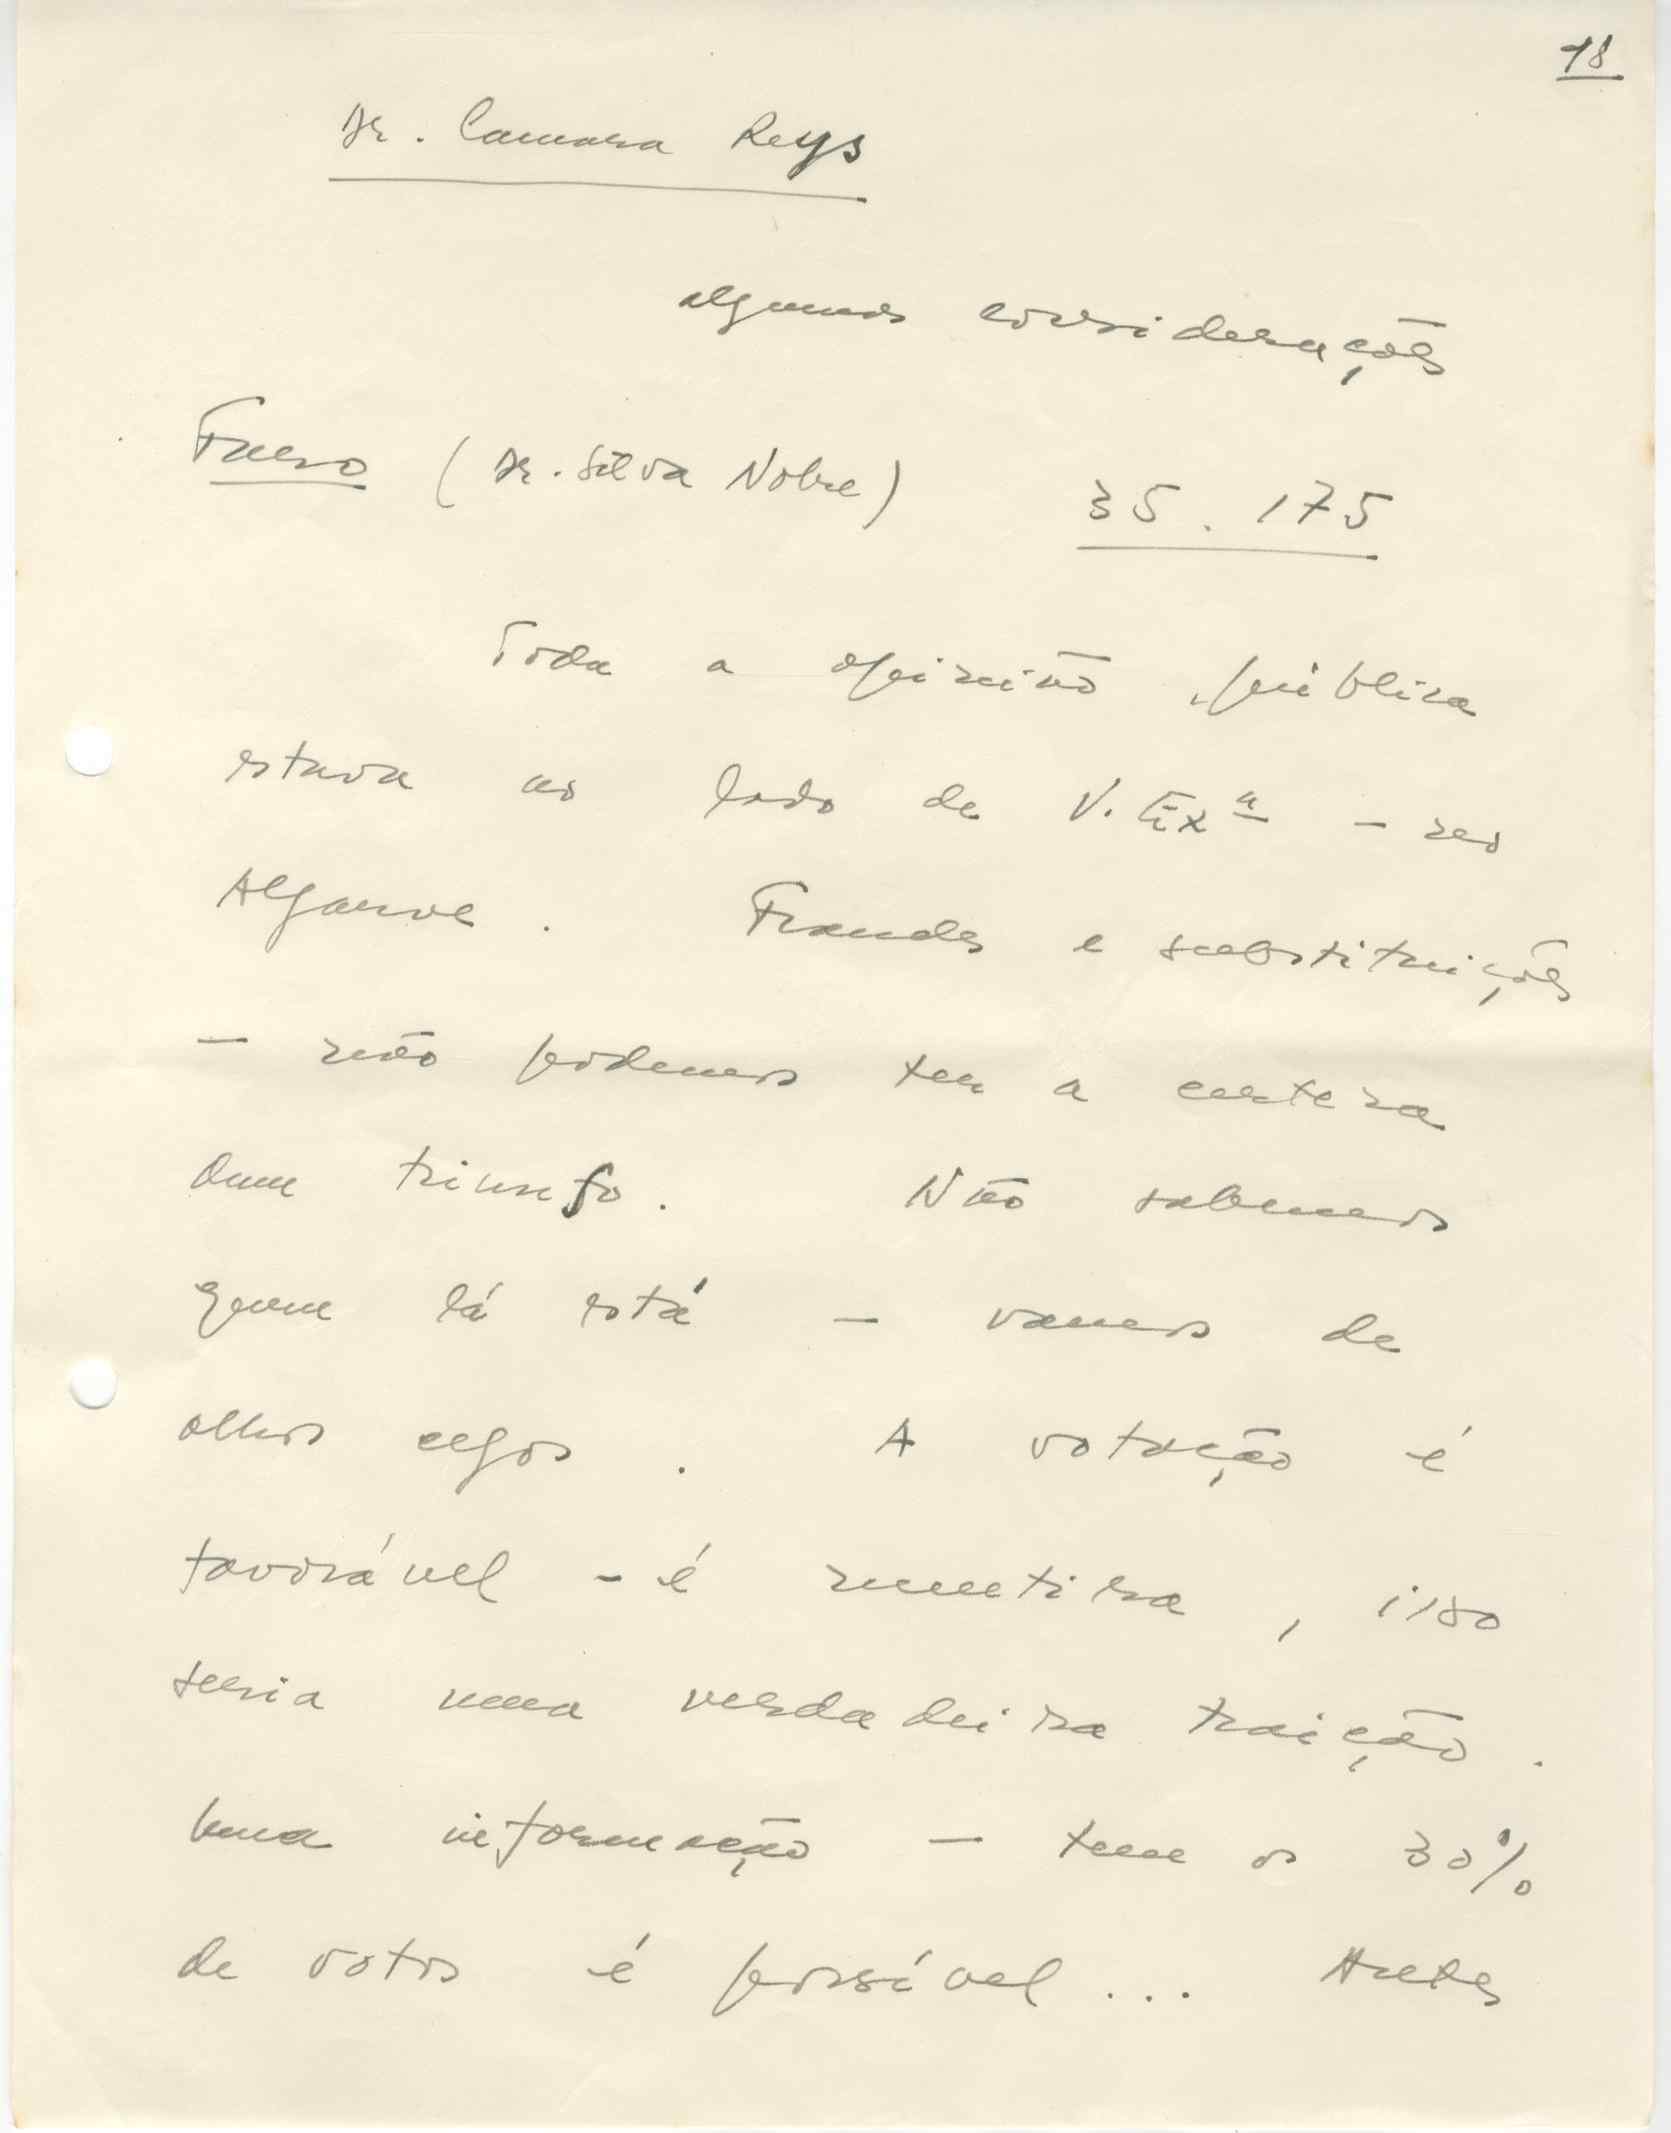 18
Dr. Camara Reys
algumas considerações
Faro (Dr. Silva Nobre) 35.175
Toda a opinião pública
estava ao lado de V. Exª - no
Algarve. Fraudes e substituições
- não podemos ter a certeza
dum triunfo. Não sabemos
quem lá está - vamos de
olhos cegos. A votação é
favorável - é mentira, isso
seria uma verdadeira traição.
Uma informação - tem os 30%
de votos é possível... Antes